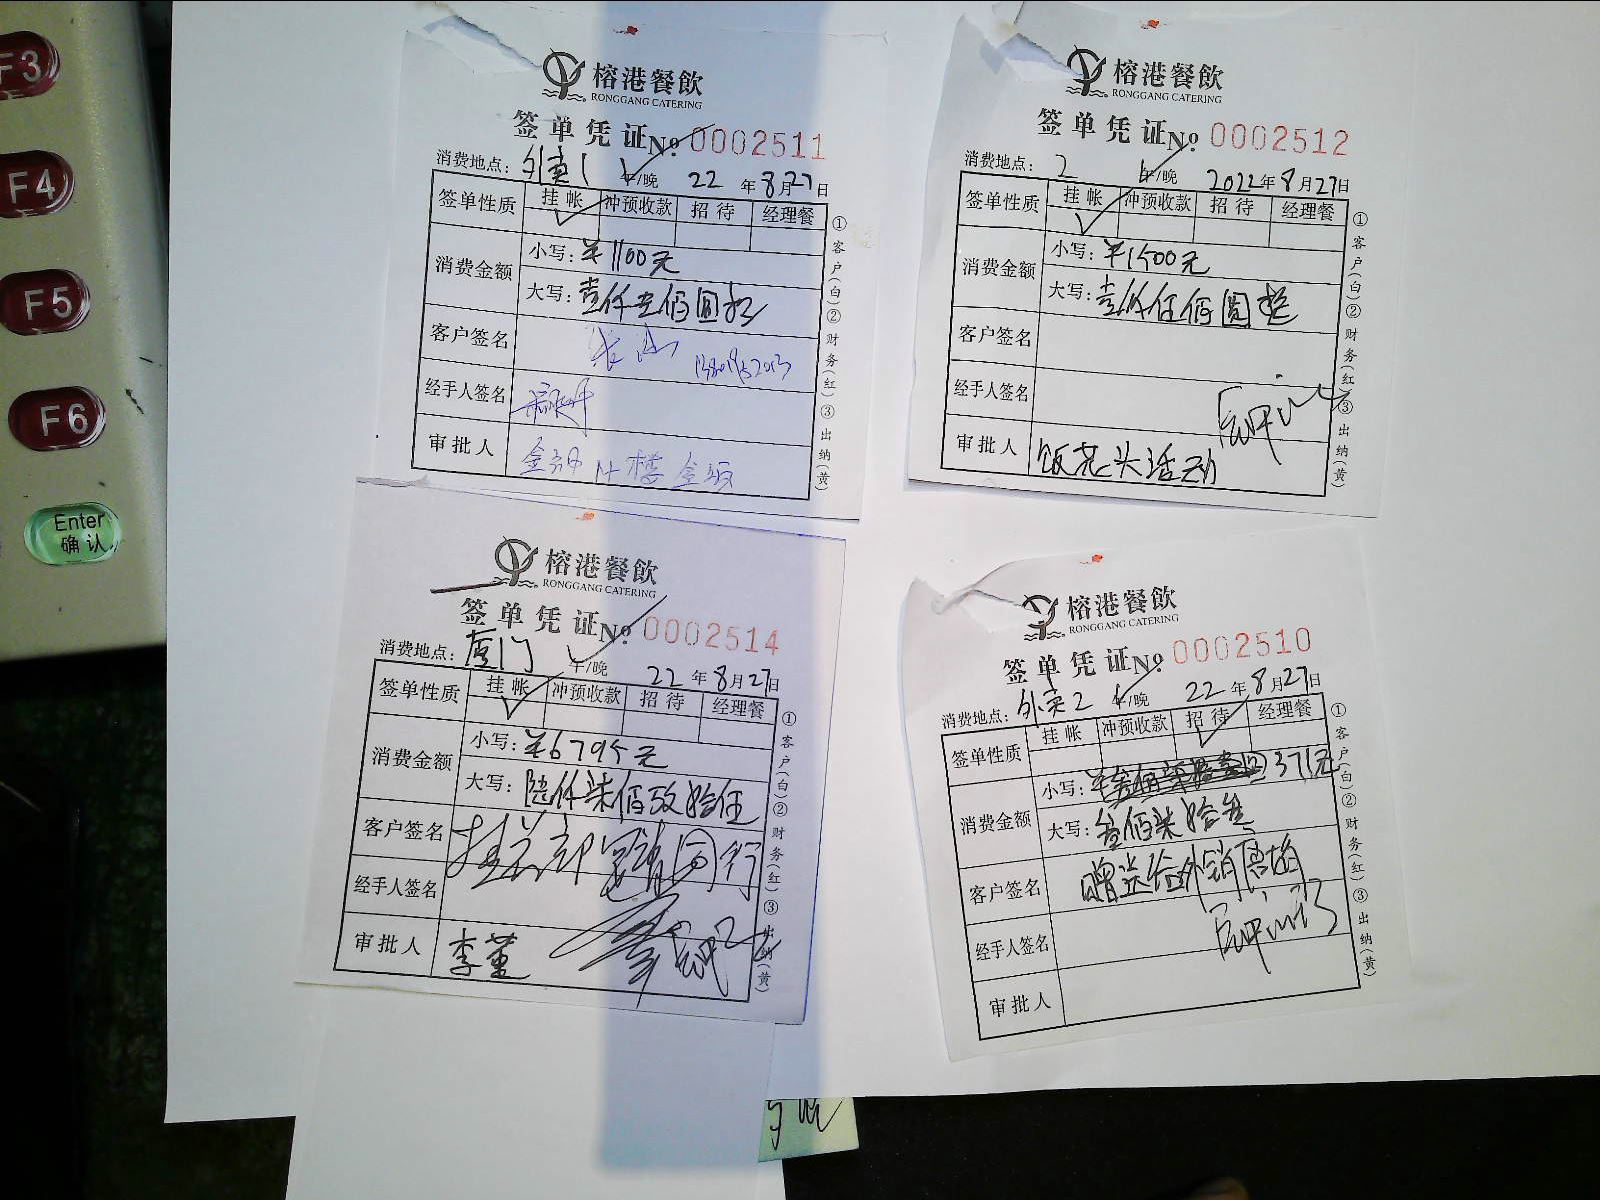 F3
F4
F5
F6
Enter
确认
榕港餐飲
RONGGANG CATERING
签单凭证 No. 0002511
消费地点：外卖1 午/晚 22年8月27日
签单性质 挂帐 冲预收款 招待 经理餐
消费金额
小写：¥1100元
大写：壹仟壹佰圆整
客户签名
经手人签名
审批人
①客户(白)②财务(红)③出纳(黄)
榕港餐飲
RONGGANG CATERING
签单凭证 No. 0002512
消费地点：2 午/晚 2022年8月27日
签单性质 挂帐 冲预收款 招待 经理餐
消费金额
小写：¥1500元
大写：壹仟伍佰圆整
客户签名
经手人签名
审批人 饭花头活动
①客户(白)②财务(红)③出纳(黄)
榕港餐飲
RONGGANG CATERING
签单凭证 No. 0002514
消费地点：厦门 午/晚 22年8月27日
签单性质 挂帐 冲预收款 招待 经理餐
消费金额
小写：¥6795元
大写：陆仟柒佰玖拾伍
客户签名
经手人签名
审批人 李董
①客户(白)②财务(红)③出纳(黄)
榕港餐飲
RONGGANG CATERING
签单凭证 No. 0002510
消费地点：外卖2 午/晚 22年8月27日
签单性质 挂帐 冲预收款 招待 经理餐
消费金额
小写：¥ 371元
大写：叁佰柒拾壹
客户签名 赠送给外销
经手人签名
审批人
①客户(白)②财务(红)③出纳(黄)